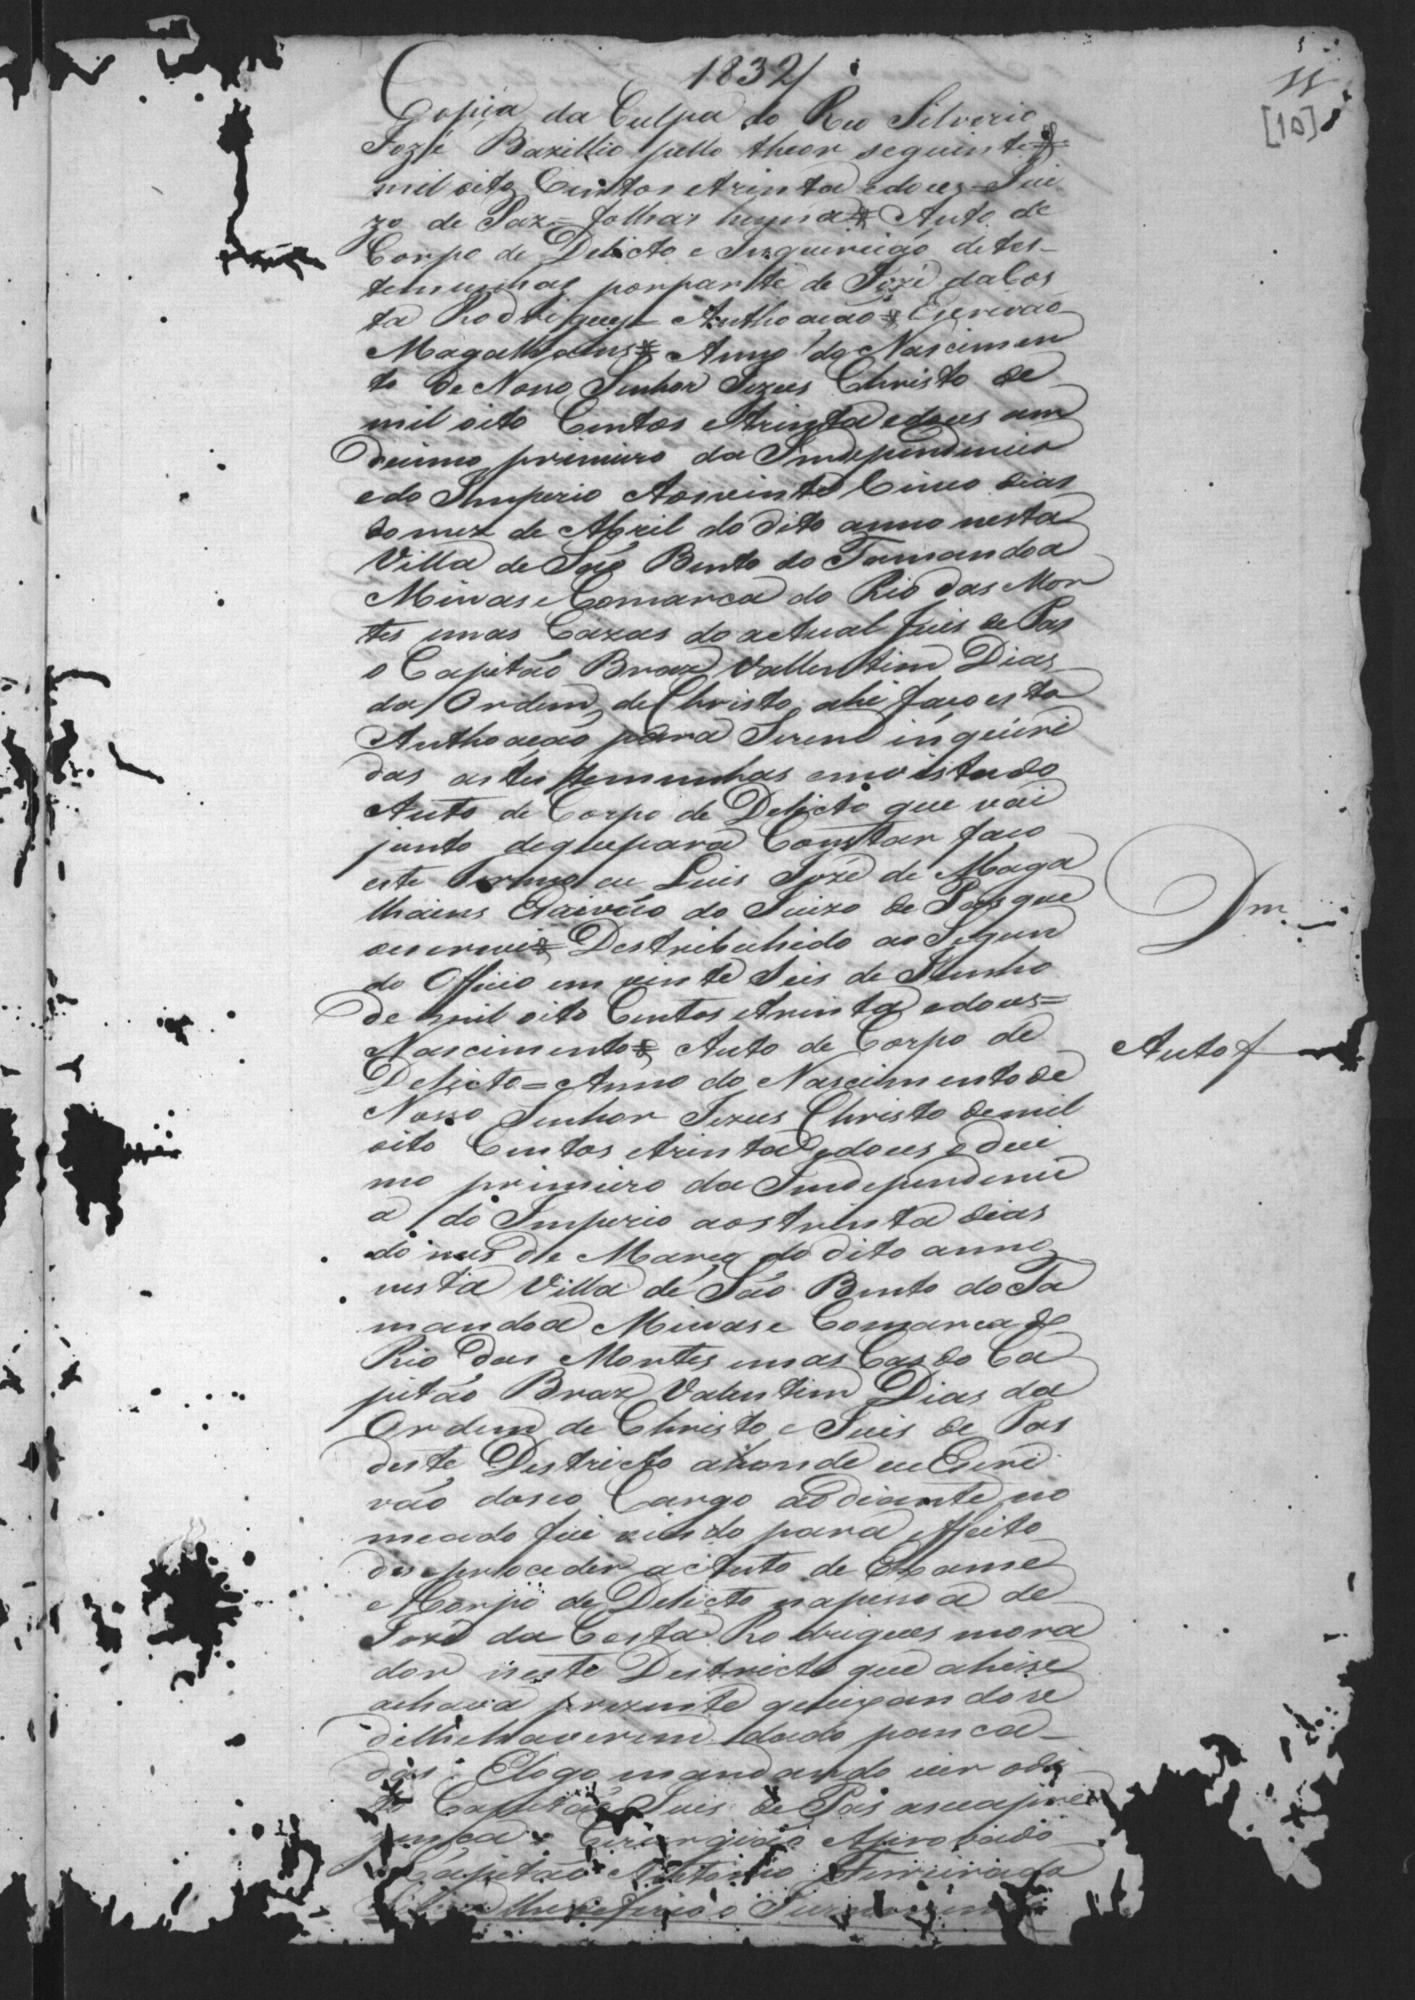 1832
11
[10]
Copia da Culpa do Reo Silverio
Jozé Bazillio pello theor seguinte =
mil oito Centos etrinta edoes = Jui
zo de Paz = folhas huma = Auto de
Corpo de Delicto e Inquirição de tes-
temunhas porparte de Jozé daCos
ta Rodrigues = Authoação = Escrivão
Magalhaens = Anno do Nascimen
to de Noso Senhor Jezus Christo de
mil oito Centos etrinta edoes um
decimo primeiro da Independencia
edo Imperio Aosvinte Cinco dias
do mez de Abril do dito anno nesta
Villa de São Bento do Tamandoa
Minas e Comarca do Rio das Mor
tes emas Cazas do actual Juis de Pas
o Capitão Braz Vallentim Dias
da Ordem de Christo ahi faco esta
Authoação para Serem inqueri
das as testemunhas emvistado
Auto de Corpo de Delicto que vai
junto deque para Constar faco
este termo eu Luis Jozé de Maga
lhaens Escrivão do Juizo de Pas que
oescrevi = Destribuhido ao Segun
do Officio em vinte Seis de Junho
de mil oito Centos etrinta edoes =
Nascimento = Auto de Corpo de
Delicto = Anno do Nascimento de
Nosso Senhor Jezus Christo demil
oito Centos etrinta edoes e deci
mo primeiro da Independenci
a / do Imperio aostrinta dias
do mes de Março do dito anno
nesta Villa de São Bento do Ta
mandoa Minas e Comarca do
Rio das Mortes emas Cas do Ca
pitão Braz Valentim Dias da
Ordem de Christo e Juis de Pas
deste Destricto ahonde eu Escri
vão doseo Cargo aodiante no
meado fui vindo para effeito
dese proceder a Auto de Exame
e Corpo de Delicto napessoa de
Jozé da Costa Rodrigues mora
dor neste Destricto que ahise
achava prezente queixandose
delhehaverem dado panca-
das. Elogo mandando vir
Capitão Juis de Pas asuapre
zença Cirurgião Aprovado
Capitão Antonio Ferreira da
Silva lhe deferio o Juramento
Dm.
Auto